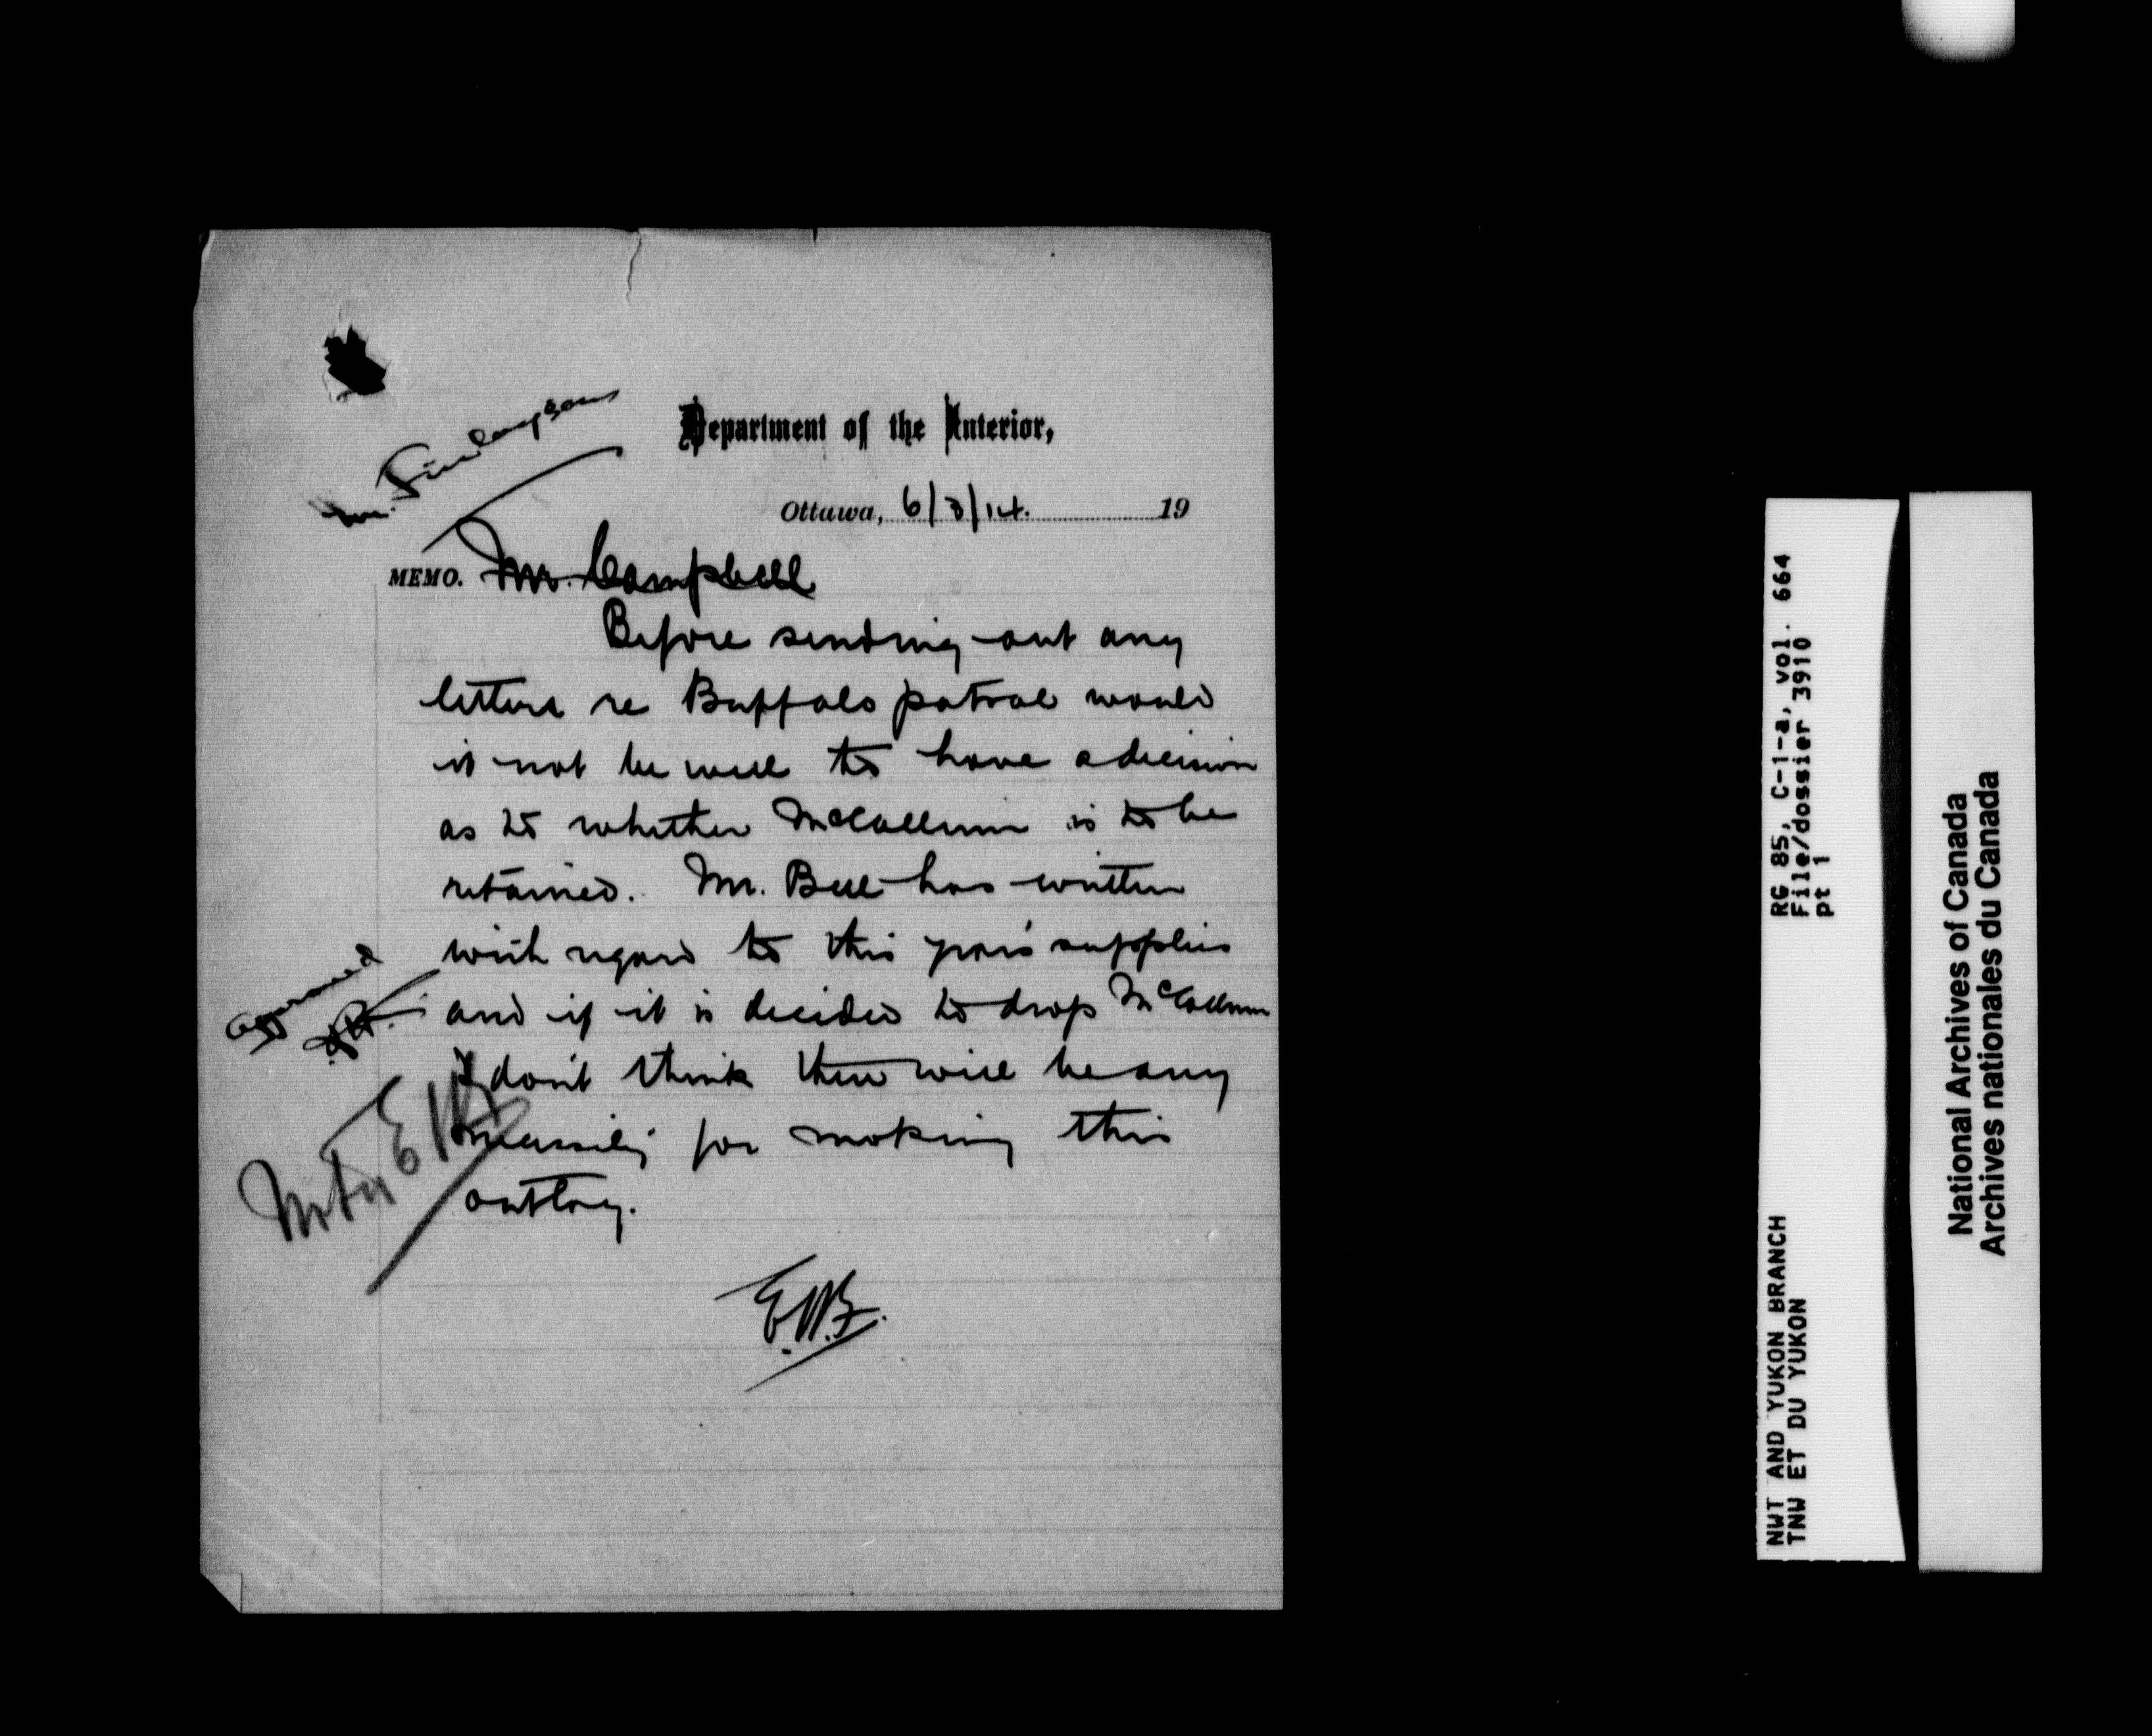 Mr. Finlayson
Department of the Interior,
Ottawa, 6/3/14. 19
MEMO. Mr. Campbell
Before sending out any
letters re Buffalo patrol would
it not be well to have a decision
as to whether McCallum is to be
retained. Mr. Bell has written
with regard to this year's supplies
and if it is decided to drop McCallum
I don't think there will be any
necessity for making this
outlay.
E.H.B.
RG 85, C-1-a, vol. 664
File/dossier 3910
pt 1
NWT AND YUKON BRANCH
TNW ET DU YUKON
National Archives of Canada
Archives nationales du Canada